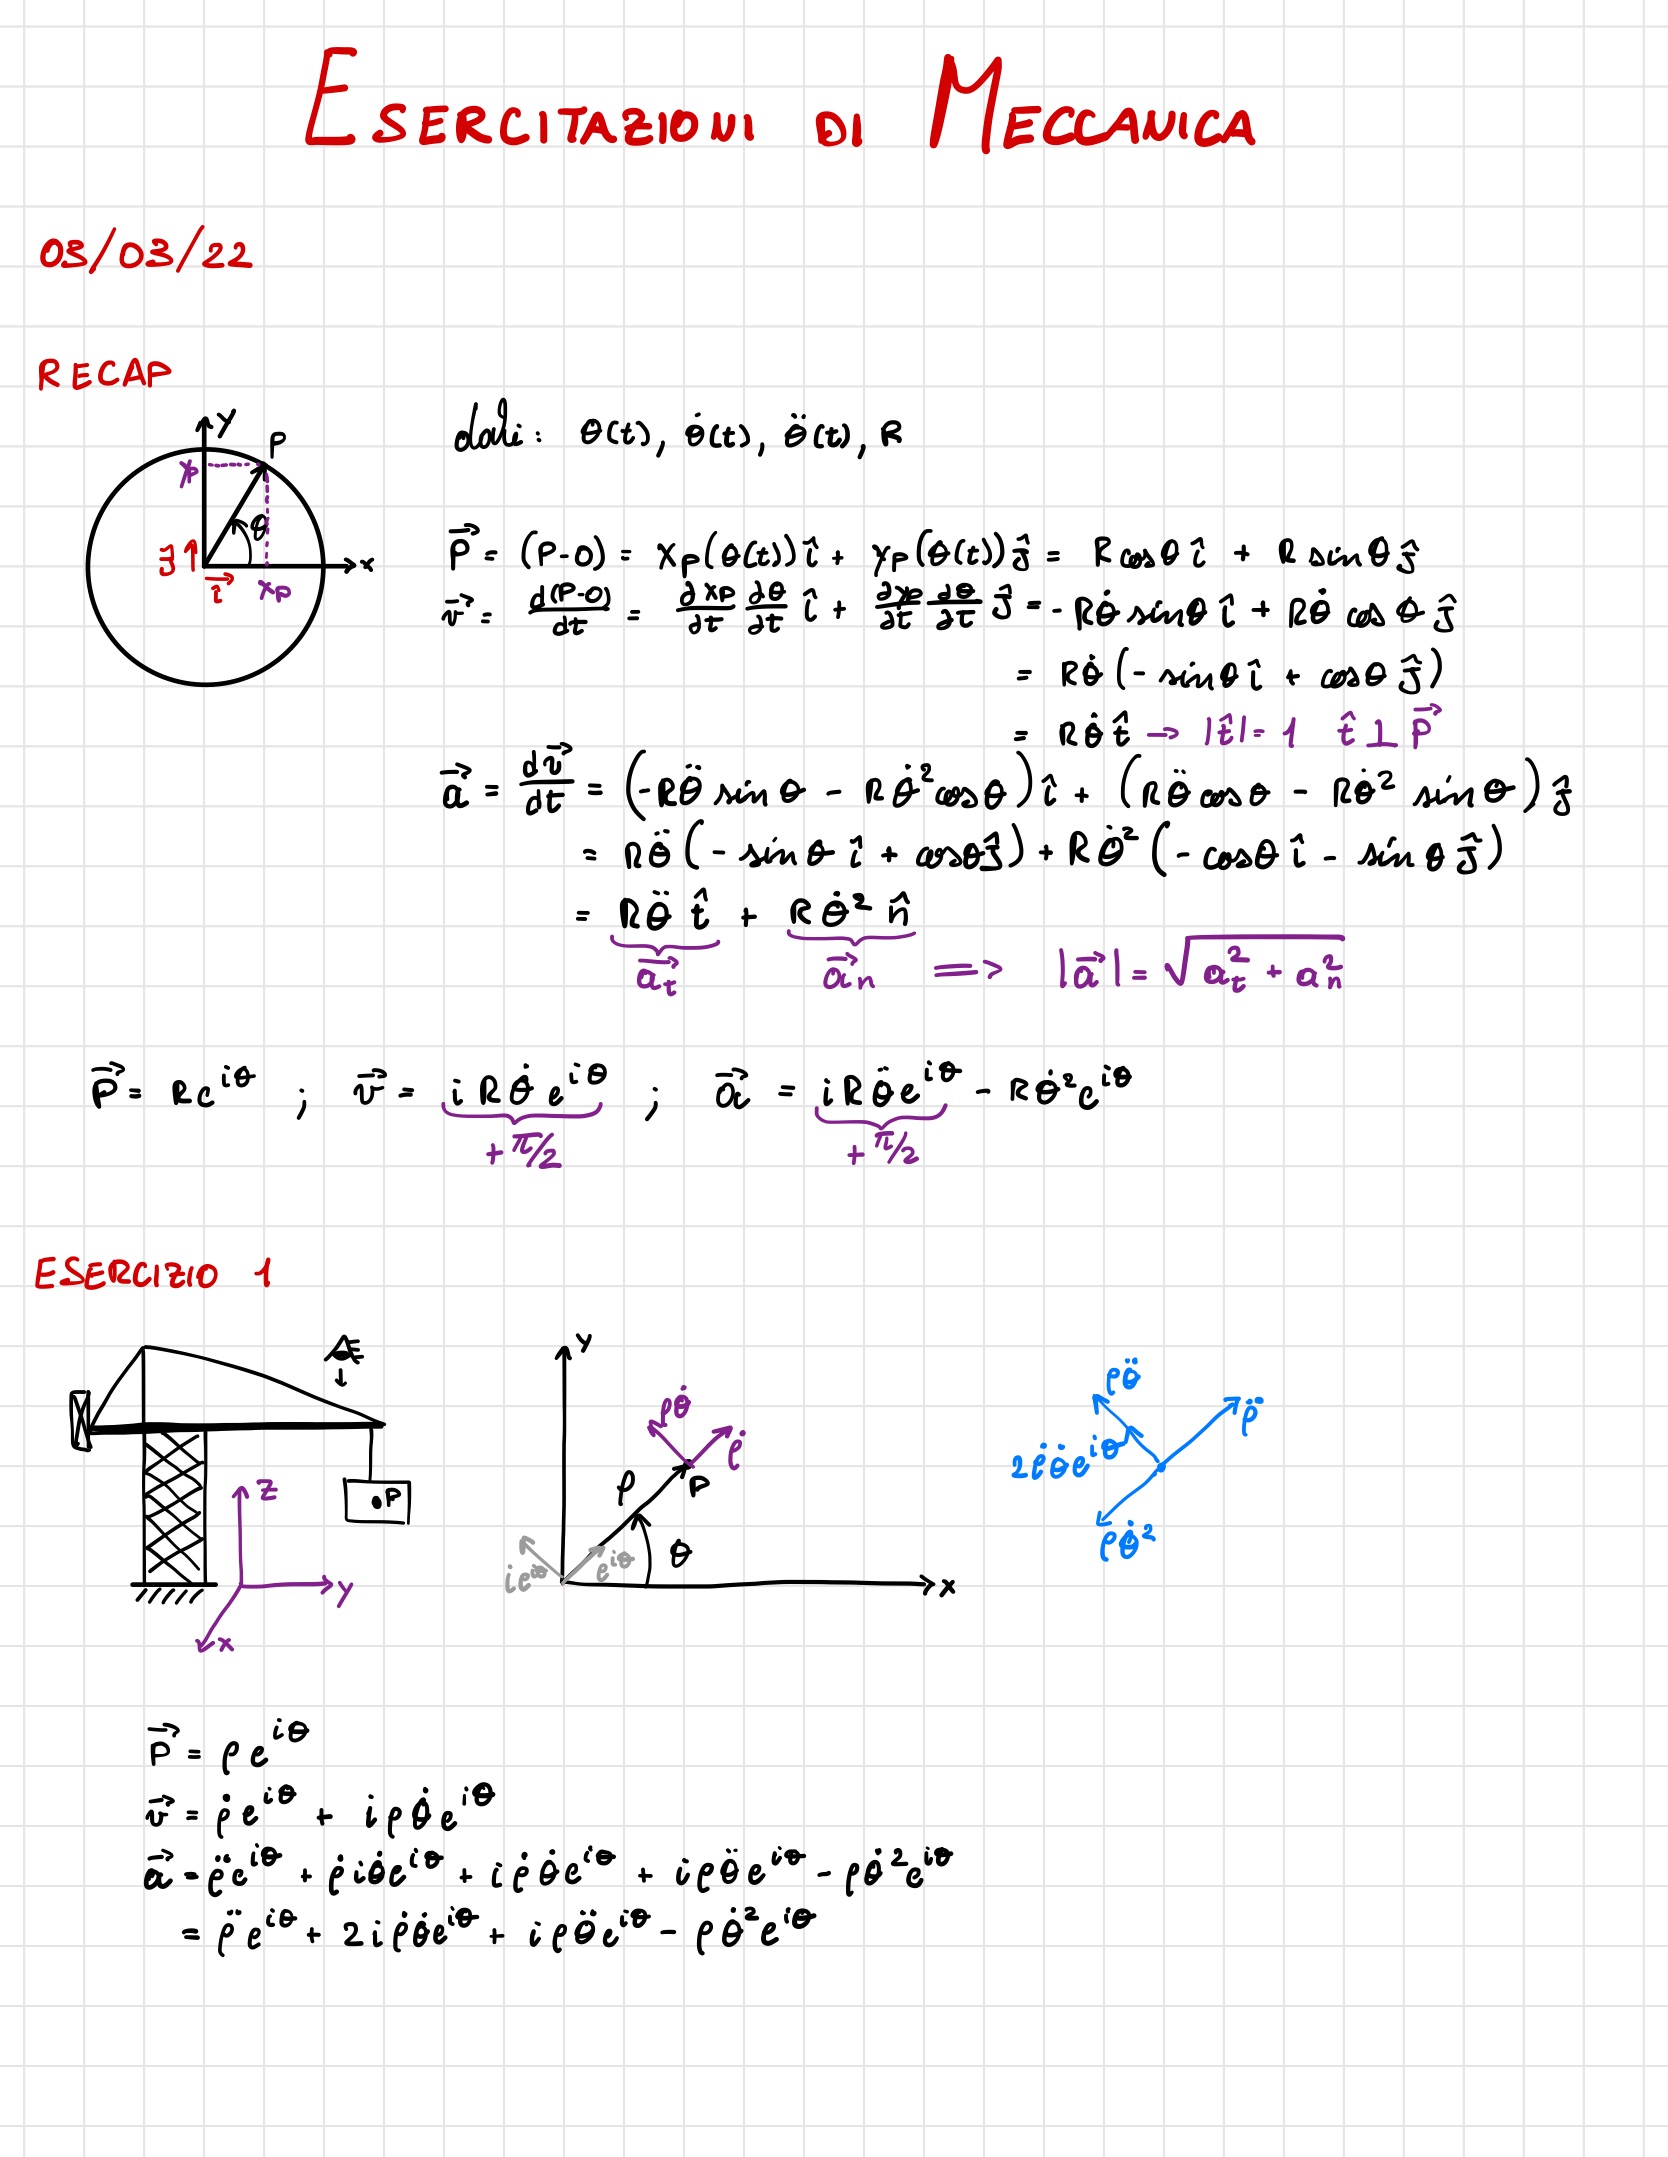 ESERCITAZIONI DI MECCANICA
03/03/22
RECAP
y P yₚ θ x j⃗ i⃗ xₚ
dati: θ(t), θ̇(t), θ̈(t), R
P⃗ = (P-O) = xₚ(θ(t)) î + yₚ(θ(t)) ĵ = R cosθ î + R sinθ ĵ
v⃗ = d(P-O)/dt = ∂xₚ/∂t ∂θ/∂t î + ∂yₚ/∂t ∂θ/∂t ĵ = - Rθ̇ sinθ î + Rθ̇ cos θ ĵ
= Rθ̇ (- sinθ î + cosθ ĵ)
= Rθ̇ t̂ → |t̂| = 1 t̂ ⊥ P⃗
a⃗ = dv⃗/dt = (-Rθ̈ sin θ - Rθ̇² cosθ) î + (Rθ̈ cosθ - Rθ̇² sin θ) ĵ
= Rθ̈ (- sinθ î + cosθ ĵ) + Rθ̇² (- cosθ î - sin θ ĵ)
= Rθ̈ t̂ + Rθ̇² n̂
a⃗ₜ a⃗ₙ => |a⃗| = √(aₜ² + aₙ²)
P⃗ = R e^{iθ} ; v⃗ = i R θ̇ e^{iθ} ; a⃗ = i R θ̈ e^{iθ} - Rθ̇² e^{iθ}
+ π/2 + π/2
ESERCIZIO 1
P z y x
y ρθ̇ ρ̇ ρ P θ ie^{iθ} e^{iθ} x
ρθ̈ ρ̈ 2ρ̇θ̇e^{iθ} ρθ̇²
P⃗ = ρ e^{iθ}
v⃗ = ρ̇ e^{iθ} + i ρ θ̇ e^{iθ}
a⃗ = ρ̈ e^{iθ} + ρ̇ i θ̇ e^{iθ} + i ρ̇ θ̇ e^{iθ} + i ρ θ̈ e^{iθ} - ρ θ̇² e^{iθ}
= ρ̈ e^{iθ} + 2 i ρ̇ θ̇ e^{iθ} + i ρ θ̈ e^{iθ} - ρ θ̇² e^{iθ}